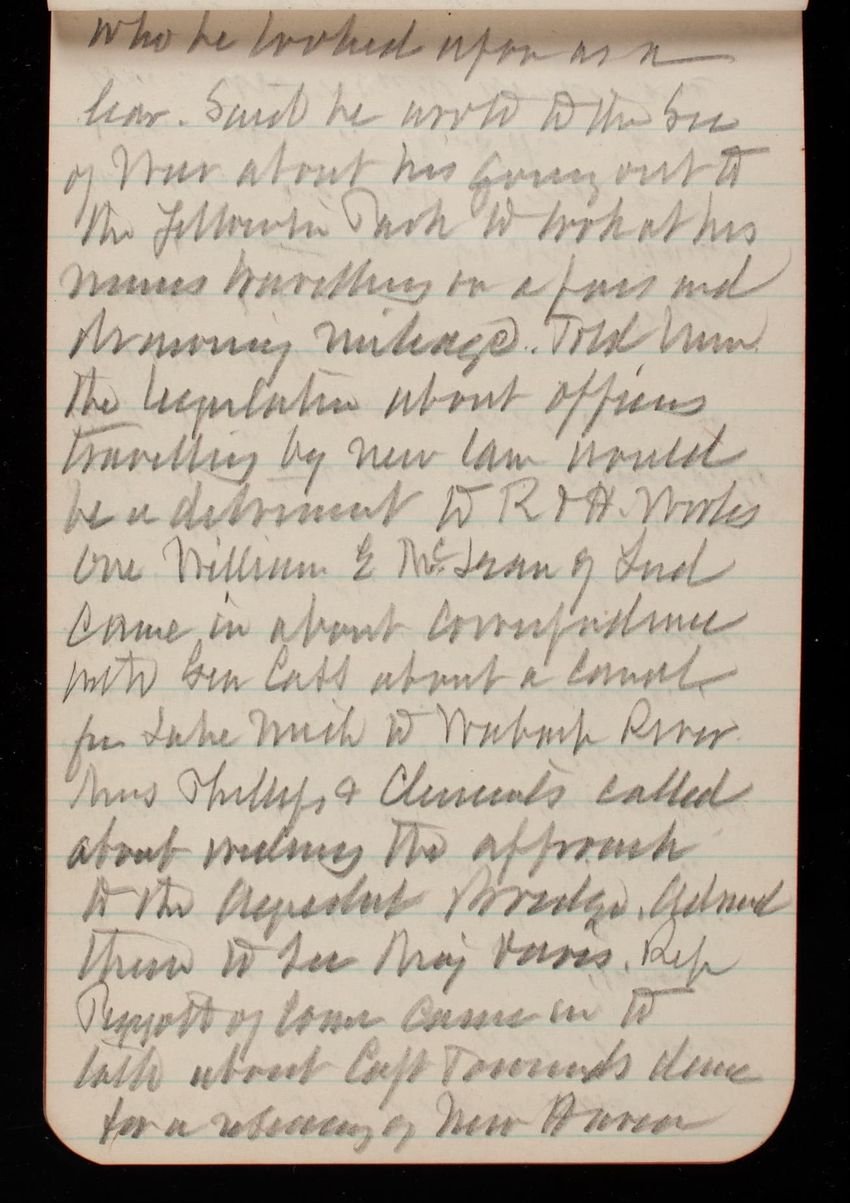 who he looked upon as a
liar. Said he wrote to the Sec
of War about his going out to
the Yellowstone Park to look at his
mines travelling on a pass and
drawing mileage. Told him
the legislation about officers
travelling by new law would
be a detriment to R & H. Works
One William E McLean of Ind
came in about correspondence
with Gen Cass about a canal
from Lake Mich to Wabash River
Phillips & Clements called
about widening the approach
to the Aqueduct Bridge. Advised
them to see Maj Davis. Rep
of Conn came in to
talk about Capt Townsends
for a of New Haven